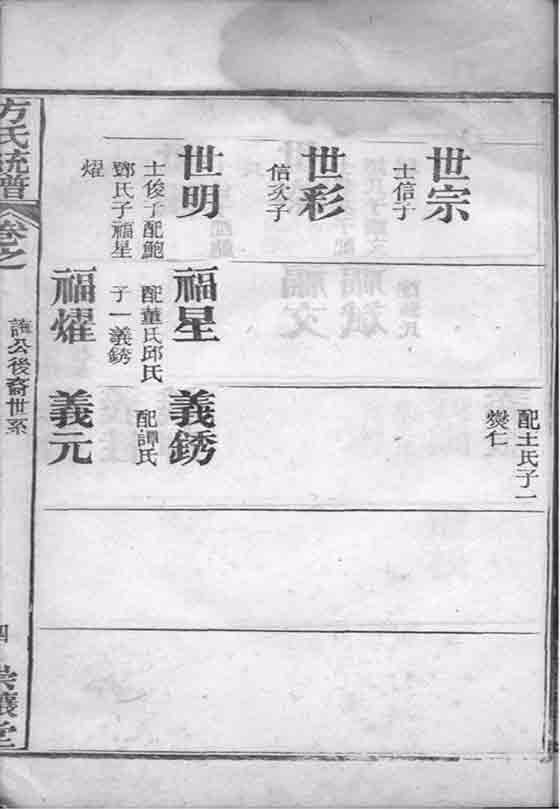 世宗
士信子
世彩
信次子
世明
士俊子配鮑
鄧氏子福星
燿
福星
配董氏邱氏
子一義銹
福燿
配王氏子一
燓仁
義銹
配譚氏
義元
方氏統譜
卷之
公後裔世系
四